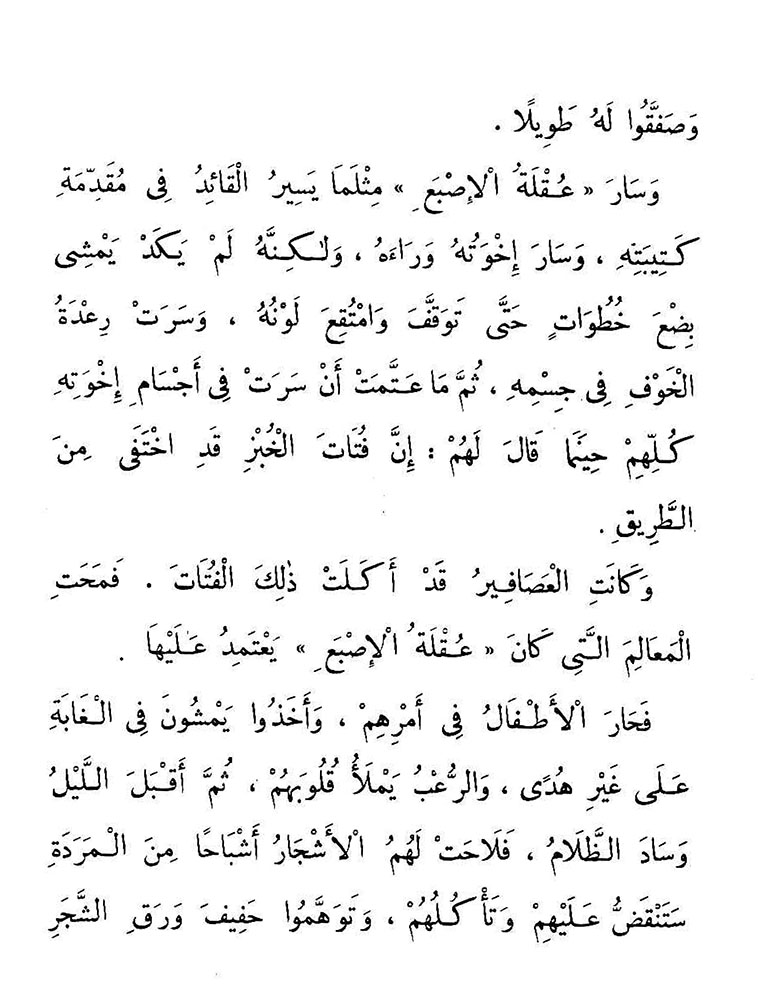 وَصَفَّقُوا لَهُ طَوِيلًا .
وَسَارَ « عُقْلَةُ الْإِصْبَعِ » مِثْلَمَا يَسِيرُ الْقَائِدُ فِى مُقَدِّمَةِ
كَتِيبَتِهِ ، وَسَارَ إِخْوَتُهُ وَرَاءَهُ ، وَلٰكِنَّهُ لَمْ يَكَدْ يَمْشِى
بِضْعَ خُطُوَاتٍ حَتَّى تَوَقَّفَ وَامْتُقِعَ لَوْنُهُ ، وَسَرَتْ رِعْدَةُ
الْخَوْفِ فِى جِسْمِهِ ، ثُمَّ مَا عَتَّمَتْ أَنْ سَرَتْ فِى أَجْسَامِ إِخْوَتِهِ
كُلِّهِمْ حِينَمَا قَالَ لَهُمْ : إِنَّ فُتَاتَ الْخُبْزِ قَدِ اخْتَفَى مِنَ
الطَّرِيقِ .
وَكَانَتِ الْعَصَافِيرُ قَدْ أَكَلَتْ ذٰلِكَ الْفُتَاتَ . فَمَحَتِ
الْمَعَالِمَ الَّتِى كَانَ « عُقْلَةُ الْإِصْبَعِ » يَعْتَمِدُ عَلَيْهَا .
فَحَارَ الْأَطْفَالُ فِى أَمْرِهِمْ ، وَأَخَذُوا يَمْشُونَ فِى الْغَابَةِ
عَلَى غَيْرِ هُدًى ، وَالرُّعْبُ يَمْلَأُ قُلُوبَهُمْ ، ثُمَّ أَقْبَلَ اللَّيْلُ
وَسَادَ الظَّلَامُ ، فَلَاحَتْ لَهُمُ الْأَشْجَارُ أَشْبَاحًا مِنَ الْمَرَدَةِ
سَتَنْقَضُّ عَلَيْهِمْ وَتَأْكُلُهُمْ ، وَتَوَهَّمُوا حَفِيفَ وَرَقِ الشَّجَرِ